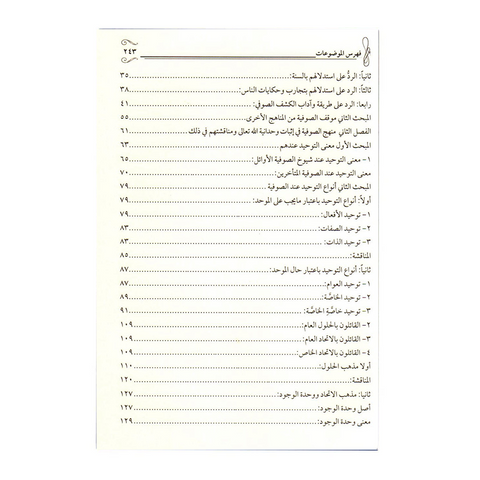 فهرس الموضوعات ٢٤٣
ثانياً: الردُّ على استدلالهم بالسنة: ٣٥
ثالثاً: الرد على استدلالهم بتجارب وحكايات الناس: ٣٨
رابعا: الرد على طريقة وآداب الكشف الصوفي: ٤١
المبحث الثاني موقف الصوفية من المناهج الأخرى ٥٥
الفصل الثاني منهج الصوفية في إثبات وحدانية الله تعالى ومناقشتهم في ذلك ٦١
المبحث الأول معنى التوحيد عندهم ٦٣
١- معنى التوحيد عند شيوخ الصوفية الأوائل: ٦٥
معنى التوحيد عند الصوفية المتأخرين: ٧٠
المبحث الثاني أنواع التوحيد عند الصوفية ٧٧
أولاً: أنواع التوحيد باعتبار مايجب على الموحد: ٧٩
١- توحيد الأفعال: ٧٩
٢- توحيد الصفات: ٨٣
٣- توحيد الذات: ٨٣
المناقشة: ٨٥
ثانياً: أنواع التوحيد باعتبار حال الموحد: ٨٧
١- توحيد العوام: ٨٧
٢- توحيد الخاصَّة: ٨٩
٣- توحيد خاصَّةِ الخاصَّة: ٩١
٢- القائلون بالحلول العام: ١٠٩
٣- القائلون بالاتحاد العام: ١٠٩
٤- القائلون بالاتحاد الخاص: ١٠٩
أولا مذهب الحلول: ١١٧
المناقشة: ١٢٠
ثانيا: مذهب الاتحاد ووحدة الوجود: ١٢٧
أصل وحدة الوجود: ١٢٧
معنى وحدة الوجود: ١٢٩